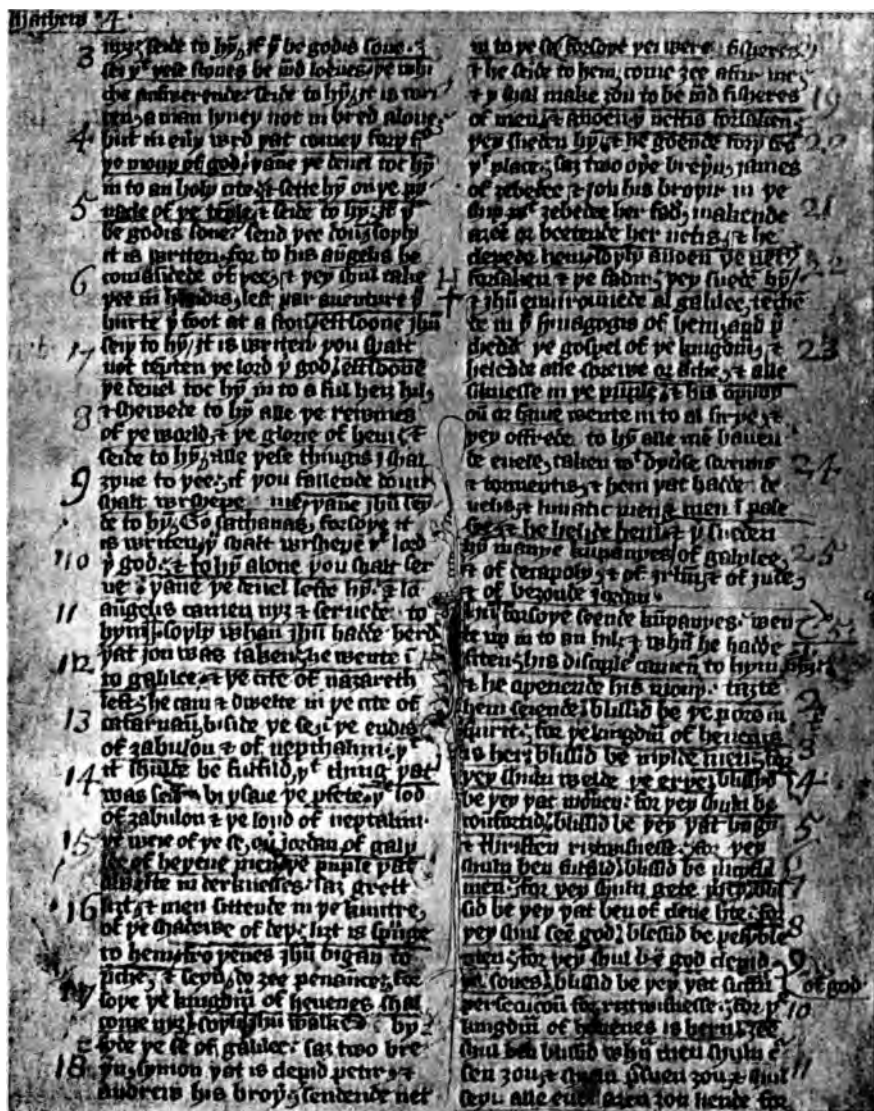 Mathew 4
3 nyȝ seide to hȳ, if þ be godis sone ⁊
sei þt þese stones be mād loeues, þe whi
che answerende seide to hȳ, it is wri
ten, a man lyueþ not in bred alone,
4 but in eny wrd þat comeþ forþ
þe mouþ of god, þane þe deuel toc hȳ
in to an holy cite, ⁊ sette hȳ on þe py
5 nacle of þe tēple, ⁊ seide to hȳ, if þ
be godis sone, send þee doū, soþly
it is writen, for to his aūgelis he
6 comaūdede of þee, ⁊ þey shul take
þee in hōndis, lest par auenture þ
hurte þ foot at a ston, eft soone jhū
7 seiþ to hȳ, it is writen, þou shalt
not tēpten þe lord þ god, eft soone
þe deuel toc hȳ in to a ful heiȝ hil,
8 ⁊ shewede to hȳ alle þe rewmes
of þe world, ⁊ þe glorie of hem, ⁊
seide to hȳ, alle þese þingis I shal
9 ȝyue to þee, if þou fallende doun
shalt wrshepe me, þane jhū sey
de to hȳ, Go sathanas, forsoþe it
10 is writen, þ shalt wrshepe þe lord
þ god, ⁊ to hȳ alone þou shalt ser
ue, þane þe deuel lefte hȳ, ⁊ lo
11 aūgelis camen nyȝ ⁊ seruede to
hym, soþly whan jhū hadde herd
12 þat jon was taken, he wente ī
to galilee, ⁊ þe cite of nazareth
left, he cam ⁊ dwelte in þe cite of
13 cafarnaū, biside þe se, ī þe endis
of zabulon ⁊ of neptalim, þt
14 it shulde be fulfild, þt thing þat
was seid bi ysaie þe pfete, þe lōd
of zabulon ⁊ þe lond of neptalim
15 þe weie of þe se, oū jordan of galy
lee of heþene men, þe puple þat
dwelte in derknesses, saȝ grett
16 liȝt, ⁊ men sittende in þe kuntre
of þe shadewe of deþ, liȝt is sprūge
to hem, fro þenes jhū bigan to
17 pche, ⁊ seyn, do ȝee penance, for
soþe þe kingdm of heuenes shal
come nyȝ, soþly jhū walkēd by
18 side þe se of galilee, saȝ two bre
þn, symon þat is clepid petir, ⁊
andrew his broþ, sendende net
in to þe se, forsoþe þei were fisheres
19 ⁊ he seide to hem, come ȝee aftir me,
⁊ y shal make ȝou to be mād fisheres
of men, ⁊ anoen þ nettis forsaken,
20 þey sueden hȳ, ⁊ he goende forþ fro
þt place, saȝ two oþe breþn, james
of zebedee ⁊ jon his broþir in þe
21 ship wt zebedee her fadr, makende
aȝee or beetende her nettis, ⁊ he
clepede hem, soþly anoen þe nett
22 forsaken ⁊ þe fadir, þey suede hȳ,
⁊ jhū enuirounede al galilee, teche
de in þ sinagogis of hem, and p
23 chede þe gospel of þe kingdm, ⁊
helende alle sorewe or ache, ⁊ alle
siknesse in þe puple, ⁊ his opiny
oū or fame wente in to al sirye, ⁊
þey offrede to hȳ alle mē hauen
24 de euele, taken wt dyuse sorewis
⁊ tormentis, ⁊ hem þat hadde de
uelis, ⁊ lunatic men, ⁊ men ī pale
sye, ⁊ he helide hem, ⁊ þ sueden
25 hȳ manye kūpanyes of galylee
⁊ of decapoly, ⁊ of jrlm, ⁊ of jude,
⁊ of beȝonde jordan
C. 5. jhū forsoþe seende kūpanyes, wen
te up in to an hil, ⁊ whā he hadde
siten, his disciple camen to hym
2 ⁊ he openende his mouþ, tauȝte
hem seiende, blissid be þe pore in
3 spirit, for þe kingdm of heuenis
is hern, blissid be mylde men, for
4 þey shuln welde þe erþe, blissid
be þey þat mōnen, for þey shuln be
5 confortid, blissid be þey þat hungr
⁊ thristen riȝtwisnesse, for þey
6 shuln ben fulfild, blissid be merciful
7 men, for þey shuln gete mercy, blis
sid be þey þat ben of clene hte, for
8 þey shul see god, blessid be pesyble
9 men, for þey shul be god clepid
þe sones, blissid be þey þat suffrē of god
10 persecucoū for riȝtwisnesse, for þe
kingdm of heuenes is hern, ȝee
11 shul ben blissid whā men shuln c
sen ȝou, ⁊ shuln psuen ȝou, ⁊ shul
seyn alle euel aȝen ȝou liende for